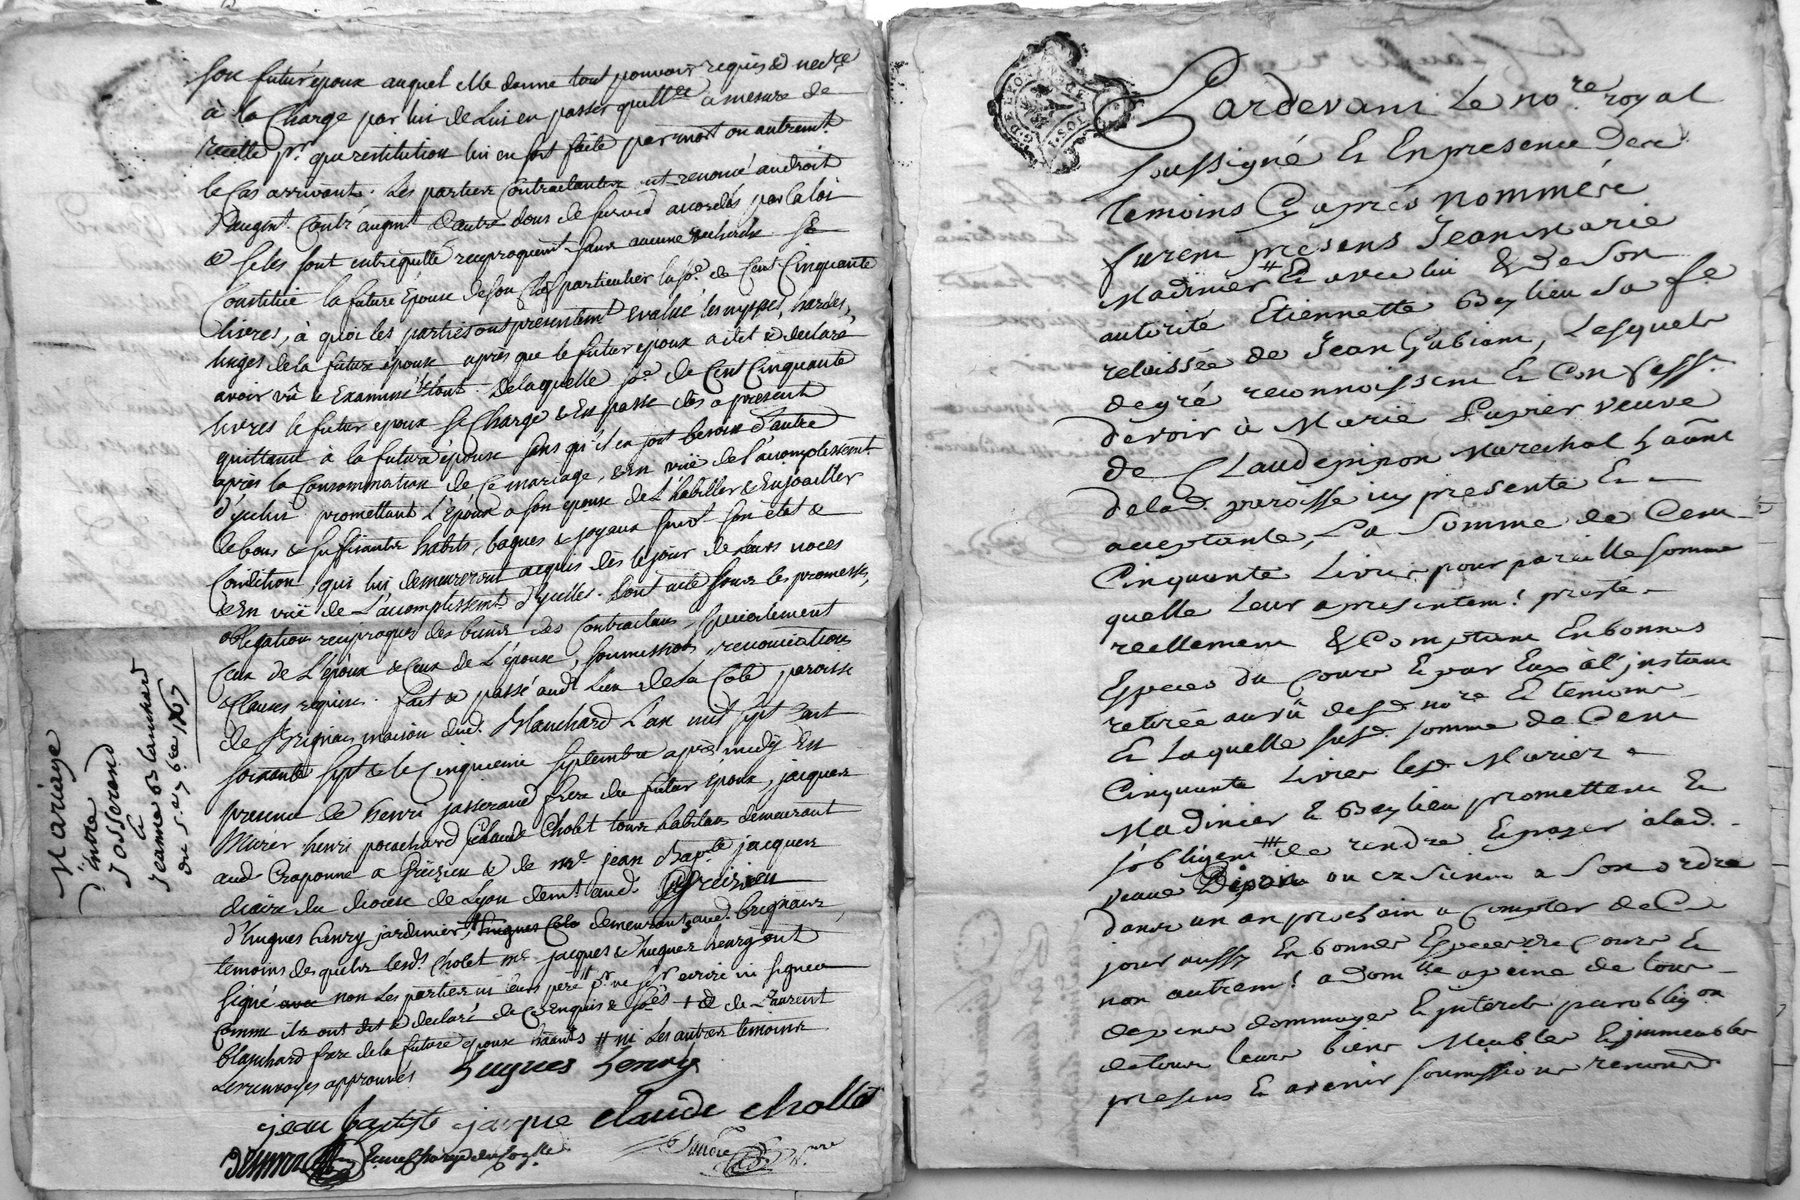 son futur époux auquel elle donne tout pouvoir requis & necre
à la Charge par lui de lui en passer quittce a mesure de
recette pr. que restitution lui en soit faite par mort ou autremt.
le Cas arrivant. Les parties Contractantes ont renoncé au droit
d'augmt. Contr'augmt & autres dons de survie accordés par la loi
& se les sont entrequitté reciproquemt. sans aucune recherche. Se
Constitue la future Epouse de son Chef particulier la so.e de Cent Cinquante
livres, à quoi les parties ont presentemt Evalué les nippes, hardes,
linges de la future epouse après que le futur epoux a dit & declaré
avoir vû & Examiné le tout. De laquelle so.e de Cent Cinquante
livres le futur epoux se Charge & En passe dès a present
quittance à la future épouse sans qu'il en soit besoin d'autre
après la Consommation de Ce mariage, & En vüe de l'accomplissemt
d'yceluy promettant L'époux a son épouse de L'habiller & Enjoailler
de bons & suffisants habits, bagues & joyaux suivt son état &
Condition, qui lui demeureront acquis dès le jour de leurs noces
& En vüe de L'accomplissemt d'ycelles. Dont acte sous les promesses,
obligations reciproques des biens des Contractans, specialement
Ceux de L'époux & Ceux de L'épouse, soumissions, renonciations
& Clauses requises. fait & passé audt Lieu de La Côte paroisse
de St Brignais maison dud. Blanchard L'an mil sept cent
soixante sept & le Cinquieme septembre après midy En
presence de henri josserand frere du futur époux, jacques
Murier henri pouchard Claude Cholet tous habitans demeurant
aud. Craponne a Grésieu & de mre jean Bapte jacques
diacre du diocese de Lyon demt. aud. Greisieu
d'hugues henry jardinier, demeurant aud. brignais,
temoins desquels lesds. Cholet mre jacques & hugues henry ont
signé avec non Les parties ni leurs pere pr. ne sçr. ecrire ni signer
Comme ils ont dit & declaré de Ce Enquis & soés + & de Laurent
blanchard frere de la future epouse # ni les autres temoins
Les renvoyes approuvés
hugues henry
jean baptiste jacque claude chollet
Mariage
d'entre
Josserand
&
Jeanne Blanchard
du 5e 7bre 1767
Pardevant Le nore. royal
soussigné & En presence Des
temoins Cy après nommés
furent presens Jean Marie
Madinier # & avec lui & de son
autorité Etiennette Beylieu sa fe
relaissée de Jean Gabiam, Lesquels
de gré reconnoissent & Confesst.
devoir à Marie Puvier veuve
de Claude pipon Marechal
de lad. paroisse icy presente &
acceptante, La Somme de Cent
Cinquante Livres pour pareille somme
quelle Leur a presentemt. prêté
reellement & Comptant En bonnes
Especes du Cours & par Eux à l'instant
retirée au vû desds nore & temoins
& Laquelle susd. somme de Cent
Cinquante Livres lesd. Mariez
Madinier & Beylieu promettent &
s'obligent # de rendre & payer à lad.
veuve Pipon ou es siens a son ordre
dans un an prochain a Compter de Ce
jour aussy En bonnes Especes de Cours &
non autremt. a domlle a peine de tous
depens dommages & intérêts par oblig.on
de tous leurs biens Meubles & immeubles
presens & avenir soumissions renond